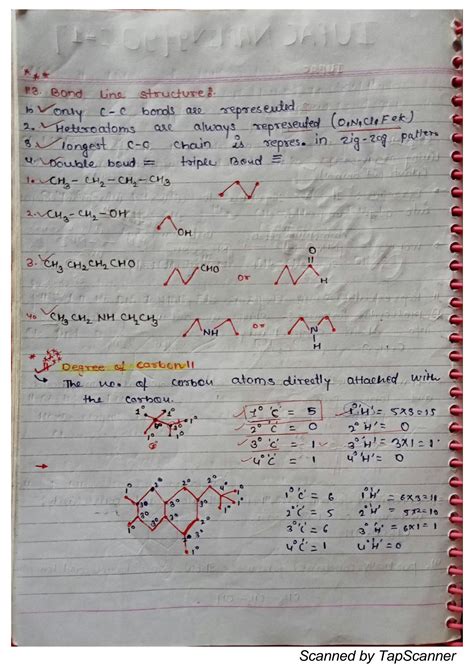 *3. Bond line structure:
1. only C-C bonds are represented.
2. Heteroatoms are always represented (O,N,Cl,S,F etc)
3 longest C-C chain is repres. in zig-zag pattern
4. Double bond = triple Bond ≡
1. CH3-CH2-CH2-CH3
2. CH3-CH2-OH
OH
3. CH3CH2CH2CHO
CHO or O H
4. CH3 CH2 NH CH2CH3
NH or N H
Degree of carbon!!
The no. of carbon atoms directly attached with
the carbon.
1°'C' = 5 1°'H' = 5X3=15
2°'C' = 0 2°'H' = 0
3°'C' = 1 3°'H' = 3X1=1
4°'C' = 1 4°'H' = 0
1°'C' = 6
2°'C' = 5 2°'H' = 5x2=10
3°'C' = 6 3°'H' = 6x1=1
4°'C' = 1 4°'H' = 0
Scanned by TapScanner